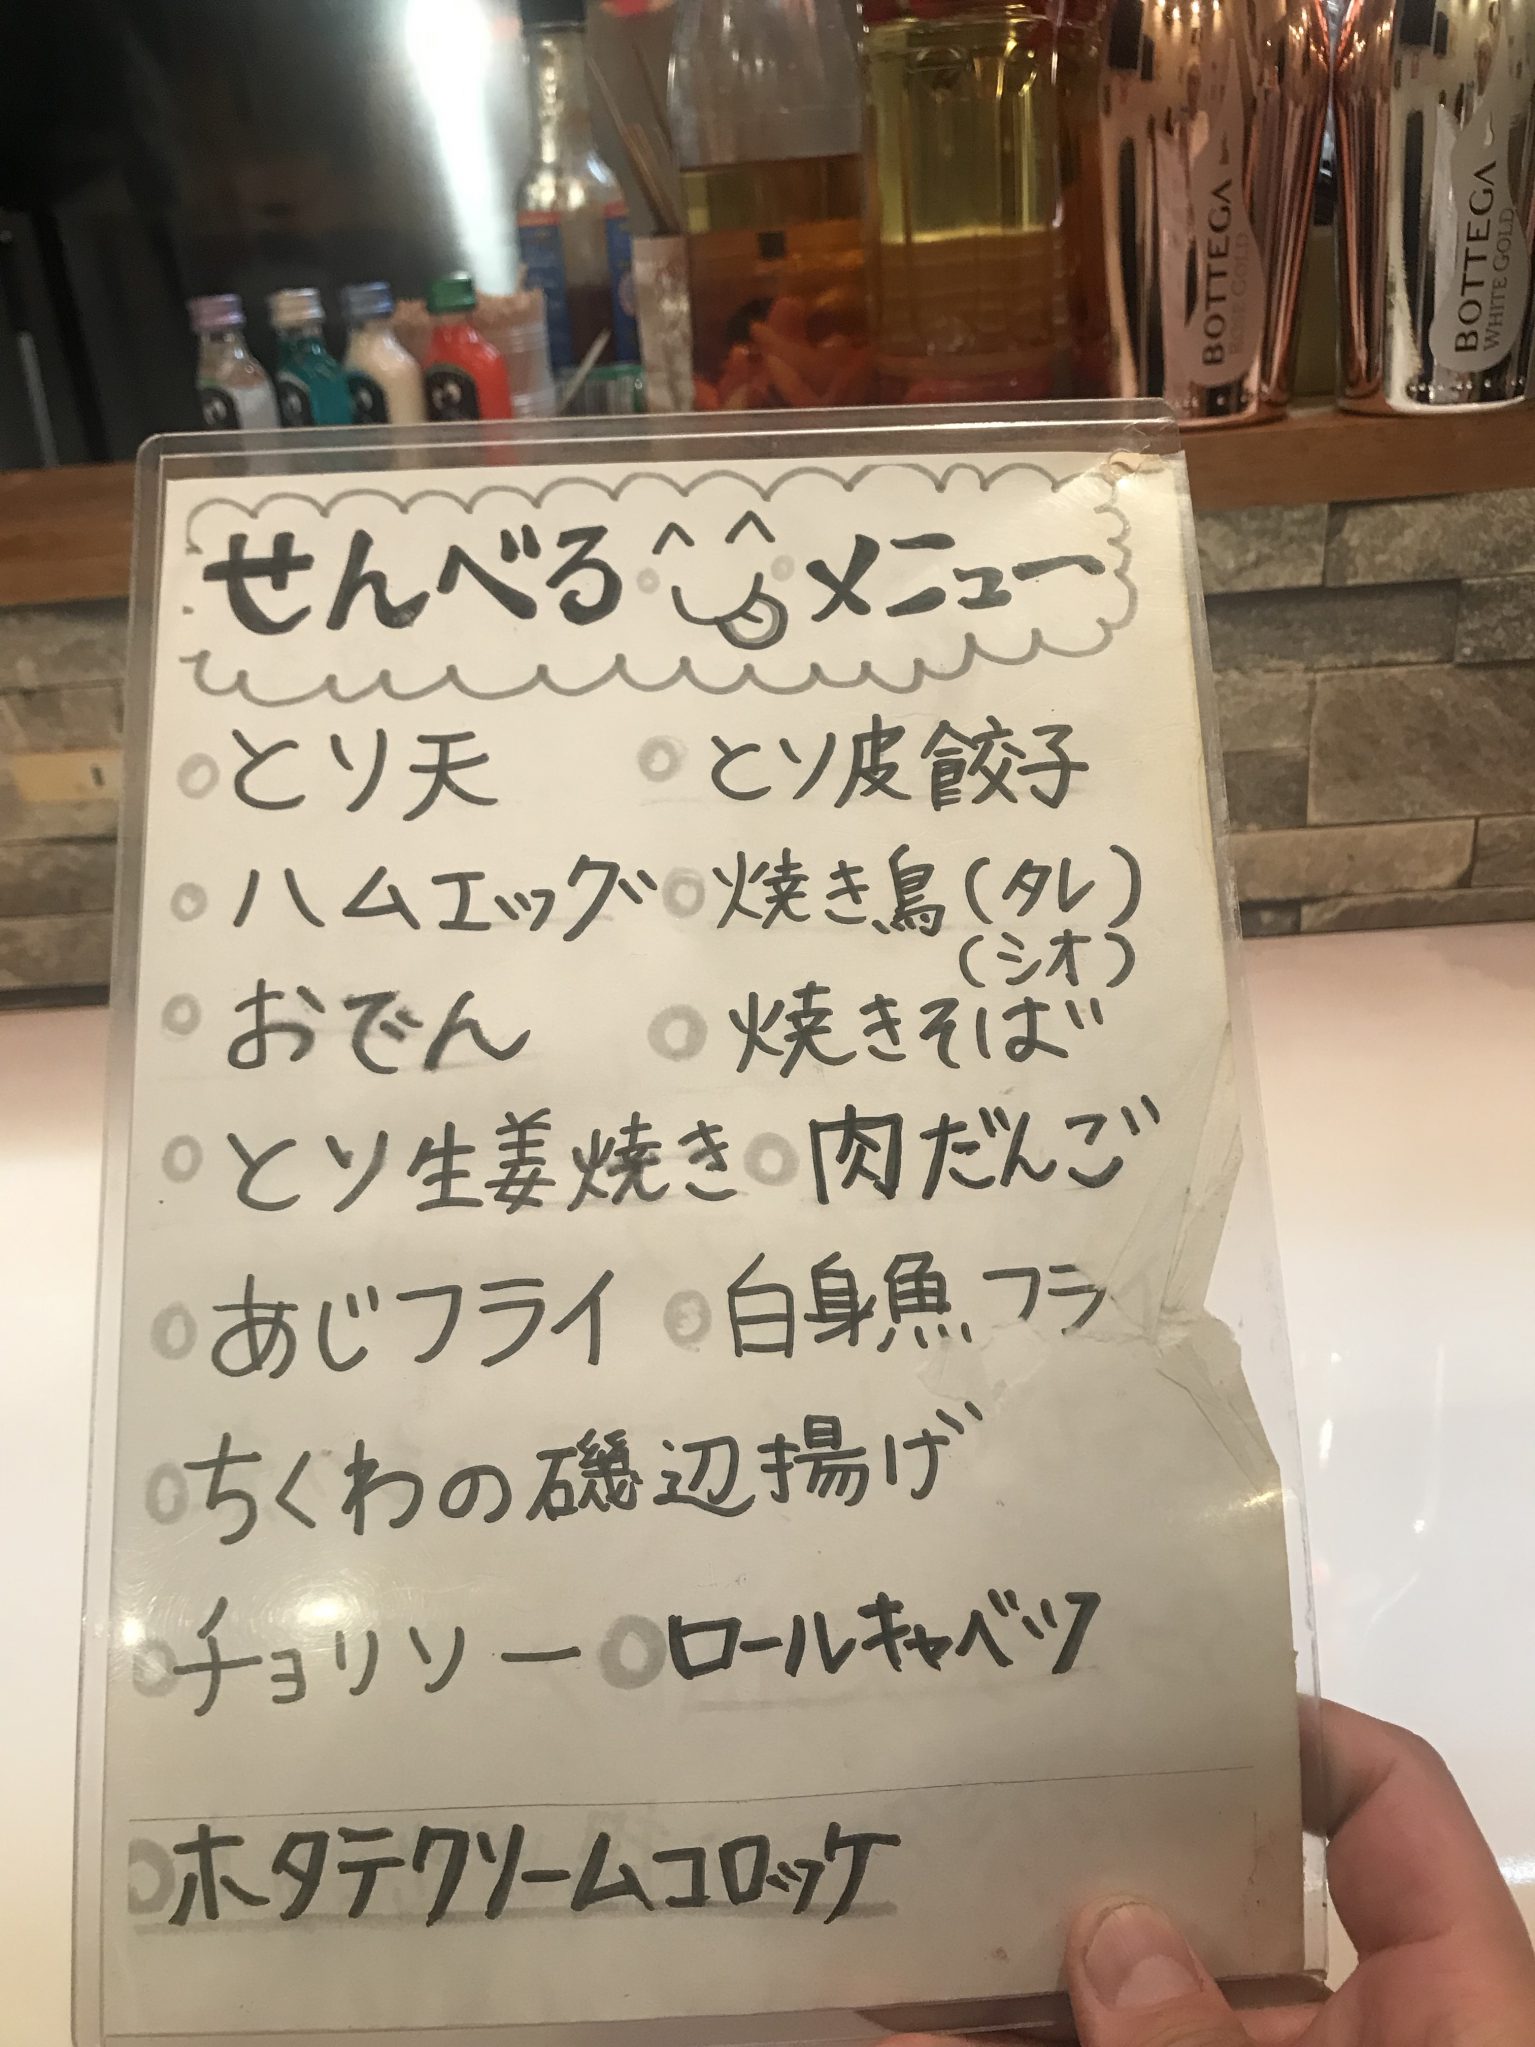 BOTTEGA
ROSE GOLD
BOTTEGA
WHITE GOLD
せんべる メニュー
とり天 とり皮餃子
ハムエッグ 焼き鳥(タレ)
(シオ)
おでん 焼きそば
とり生姜焼き 肉だんご
あじフライ 白身魚フライ
ちくわの磯辺揚げ
チョリソー ロールキャベツ
ホタテクリームコロッケ